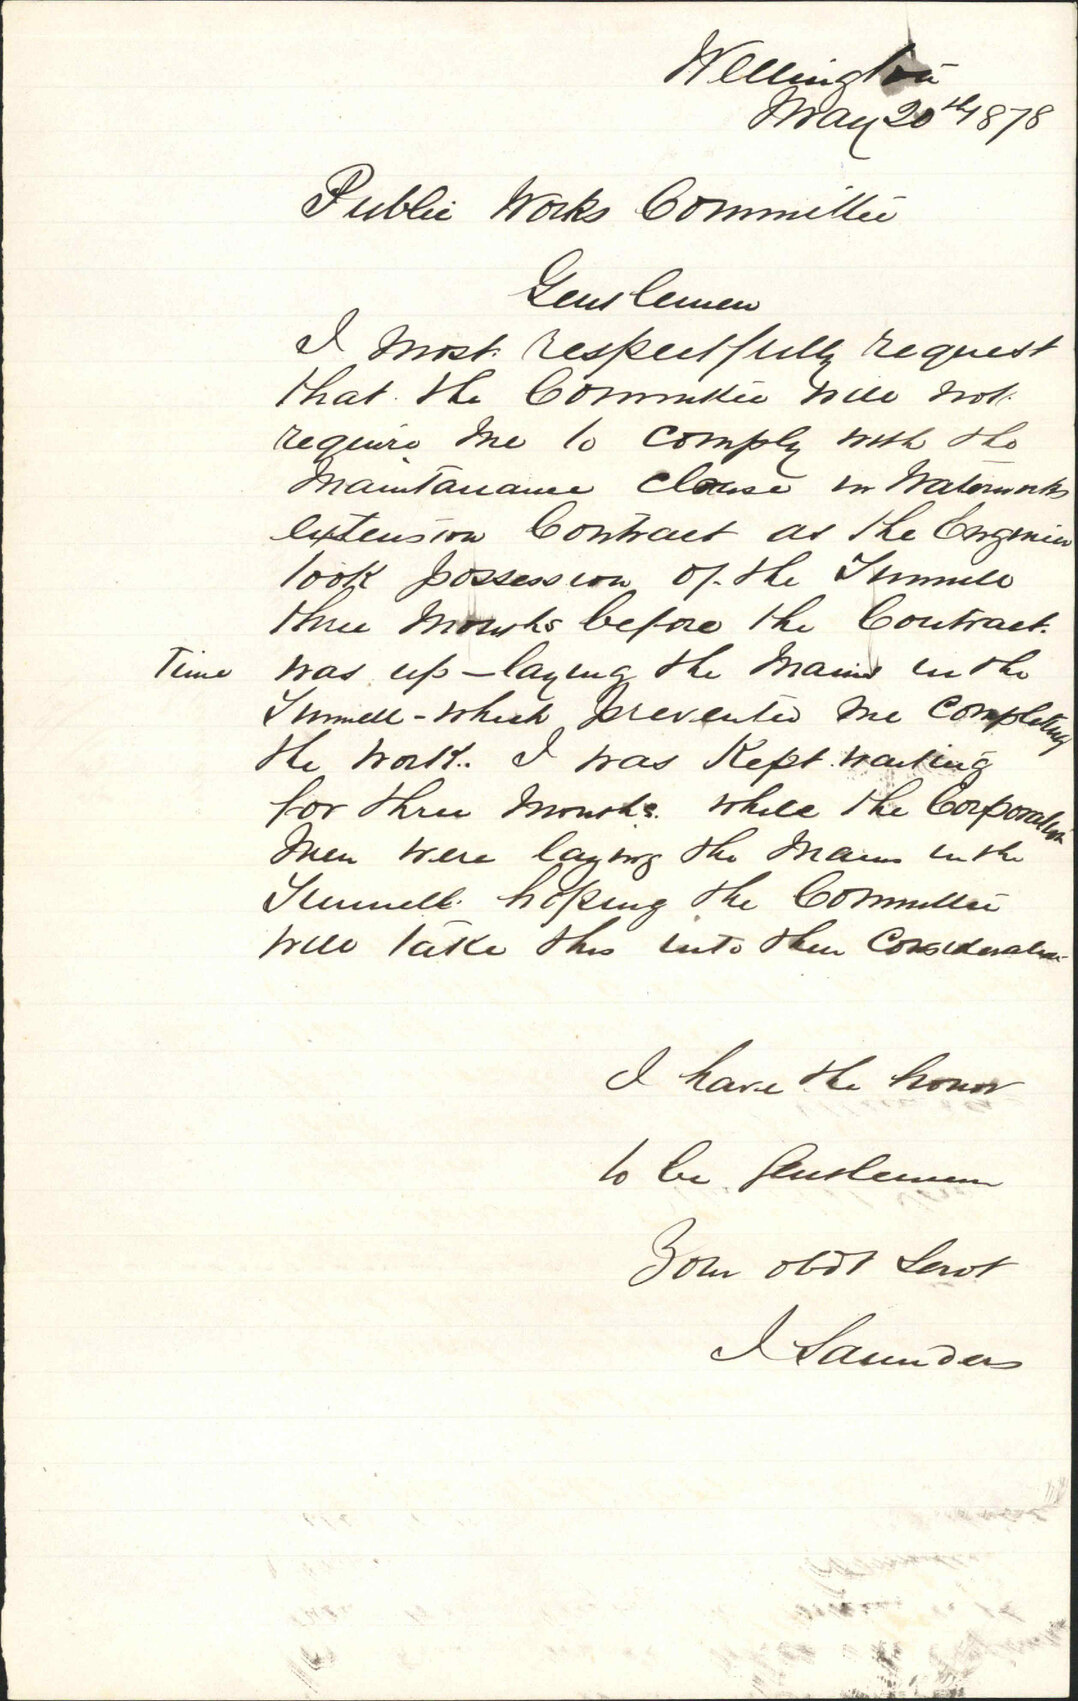 Wellington
May 20th 1878
Public Works Committee
Gentlemen
I most respectfully request
that the Committee will not
require me to comply with the
Maintanance clause in Waterworks
extension Contract as the Engineer
took possession of the Tunnell
three Months before the Contract
Time was up - laying the Mains in the
Tunnell - which prevented me completing
the work. I was Kept waiting
for three Months while the Corporation
Men were laying the Mains in the
Tunnell. hoping the Committee
will take this into their Consideration
I have the honor
to be Gentlemen
Your obdt Servt
J Saunders